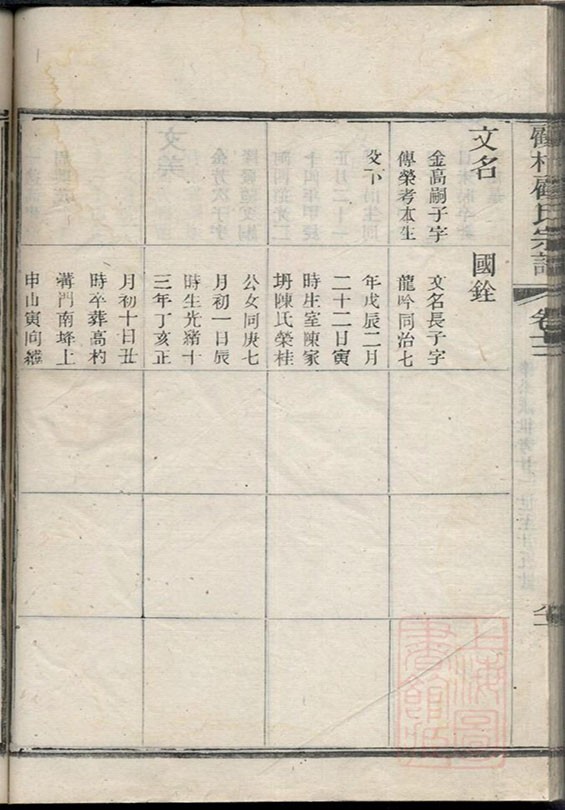 氏宗譜
文名
金高嗣子字
傳榮考本生
父下
國銓
文名長子字
龍吟同治七
年戊辰二月
二十二日寅
時生室陳家
坍陳氏榮桂
公女同庚七
月初一日辰
時生光緒十
三年丁亥正
月初十日丑
時卒葬高杓
溝門南埄上
申山寅向繼
上海圖
書館藏